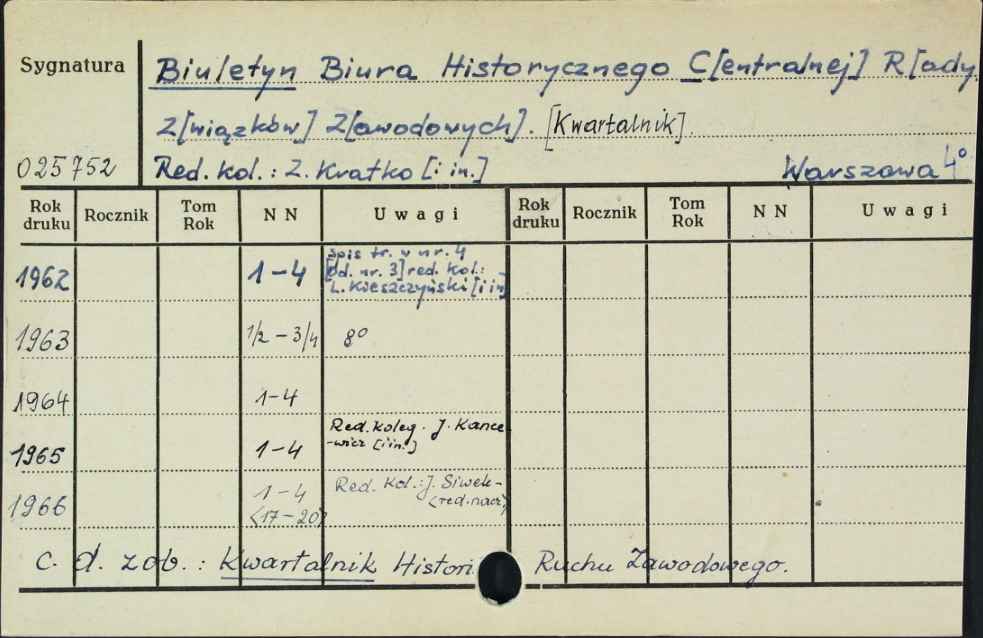 Sygnatura Biuletyn Biura Historycznego C[entralnej] R[ady
Z[wiązków] Z[awodowych]. [Kwartalnik].
025752 Red. kol.: Z. Kratko [i in.] Warszawa 4°
Rok druku Rocznik Tom Rok NN Uwagi Rok druku Rocznik Tom Rok NN Uwagi
1962 1-4 spis tr. w nr. 4
[Od. nr. 3] red. kol.:
L. Kieszczyński [i in]
1963 1/2 - 3/4 8°
1964 1-4
1965 1-4 Red. Koleg. J. Kance-
-wicz [i in.]
1966 1-4 Red. Kol.: J. Siwek-
<17-20> <red. nacz>
C. d. zob.: Kwartalnik Histori Ruchu Zawodowego.